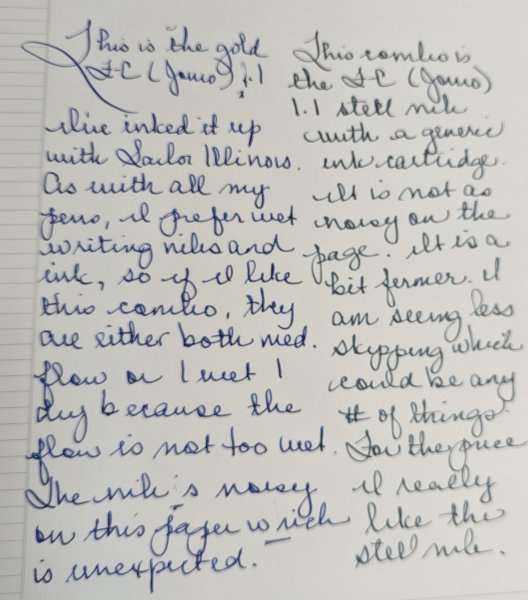 This is the gold
FC (Jowo) 1.1
I've inked it up
with Sailor Illinois.
As with all my
pens, I prefer wet
writing nibs and
ink, so if I like
this combo, they
are either both med.
flow or 1 wet 1
dry because the
flow is not too wet.
The nib is noisy
on this paper which
is unexpected.
This combo is
the FC (Jowo)
1.1 stell nib
with a generic
ink cartridge.
It is not as
noisy on the
page. It is a
bit fermer. I
am seeing less
skipping which
could be any
# of things.
For the price
I really
like the
stell nib.